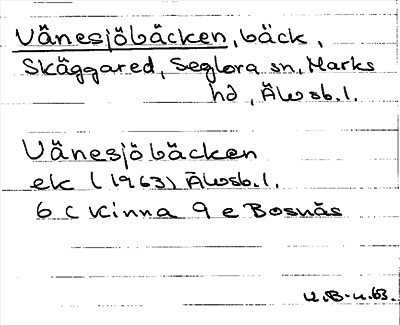 Vänesjöbäcken, bäck,
Skäggared, Seglora sn, Marks
hd, Älvsb. l.
Vänesjöbäcken
ek (1963) Älvsb. l.
6 c Kinna 9 e Bosnäs
U.B-n.63.